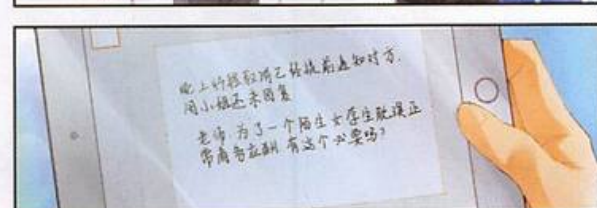 晚上行程取消已经提前通知对方.
周小姐还未回复
老师 为了一个陌生女学生耽误正
常商务应酬 有这个必要吗?